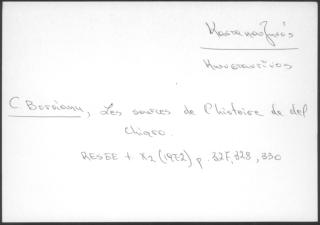 Κωνσταντίνος
C. Bersianu, Les sources de l'histoire de del
Chiaro.
RESEE t. X2 (1972) p. 327, 328, 330